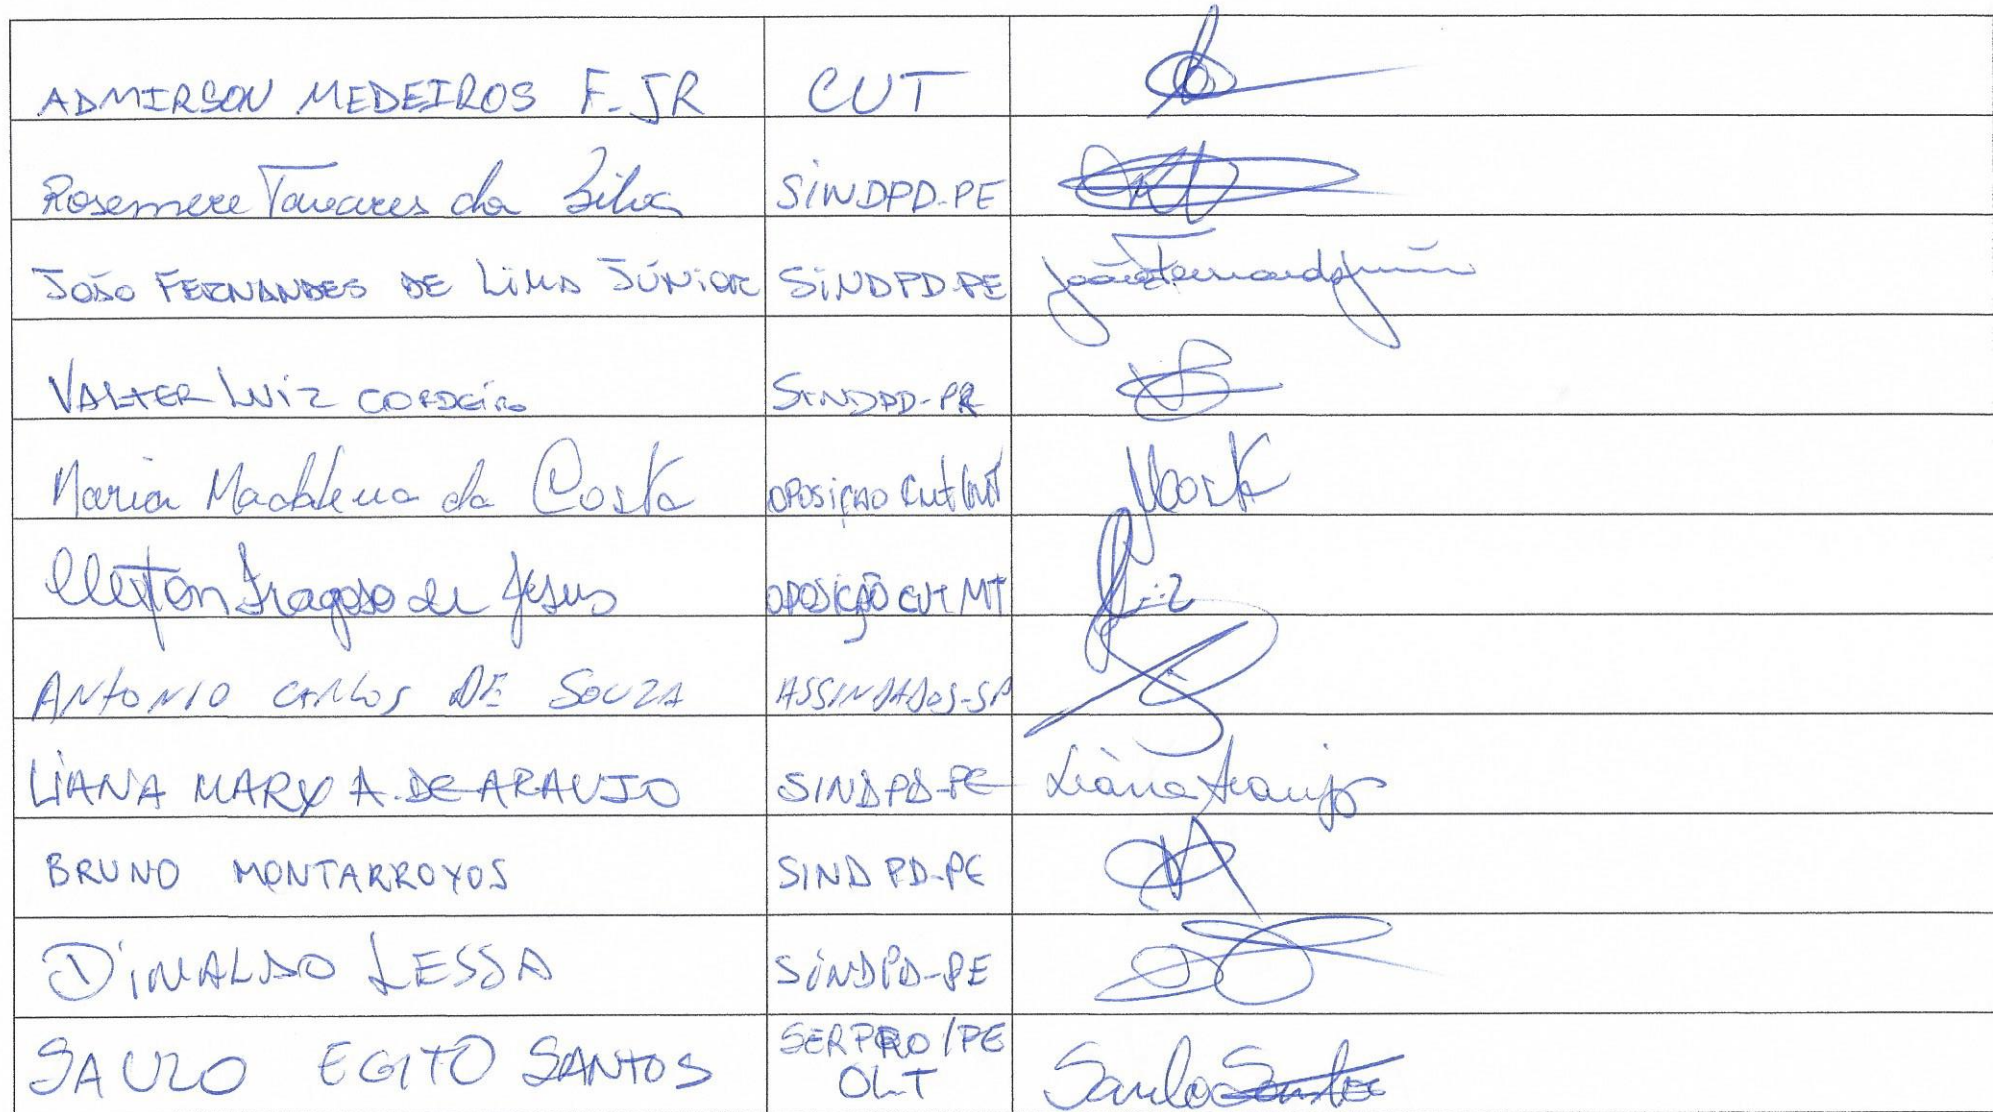 ADMIRSON MEDEIROS F. JR CUT
Rosemere Tavares da Silva SINDPD-PE
JOÃO FERNANDES DE LIMA JÚNIOR SINDPD-PE João Fernandes Júnior
VALTER LUIZ CORDEIRO SINDPD-PR
Maria Madalena da Costa OPOSIÇÃO CUT/MT MCosta
Cleiton Fragoso de Jesus OPOSIÇÃO CUT MT
ANTONIO CARLOS DE SOUZA ASSINDADOS-SP
LIANA MARY A. DE ARAUJO SINDPD-PE Liana Araujo
BRUNO MONTARROYOS SINDPD-PE
DIMALDO LESSA SINDPD-PE
SAULO EGITO SANTOS SERPRO/PE Saulo Santos
OLT